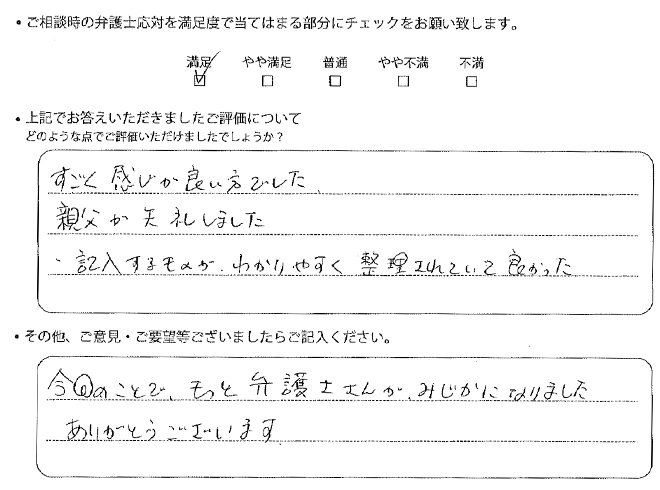 ・ご相談時の弁護士応対を満足度で当てはまる部分にチェックをお願い致します。
満足 やや満足 普通 やや不満 不満
☑ □ □ □ □
・上記でお答えいただきましたご評価について
どのような点でご評価いただけましたでしょうか？
すごく感じが良い方でした。
親父が失礼しました
・記入するモノが、わかりやすく整理されていて良かった
・その他、ご意見・ご要望等ございましたらご記入ください。
今回のことで、もっと弁護士さんが、みじかになりました
ありがとうございます